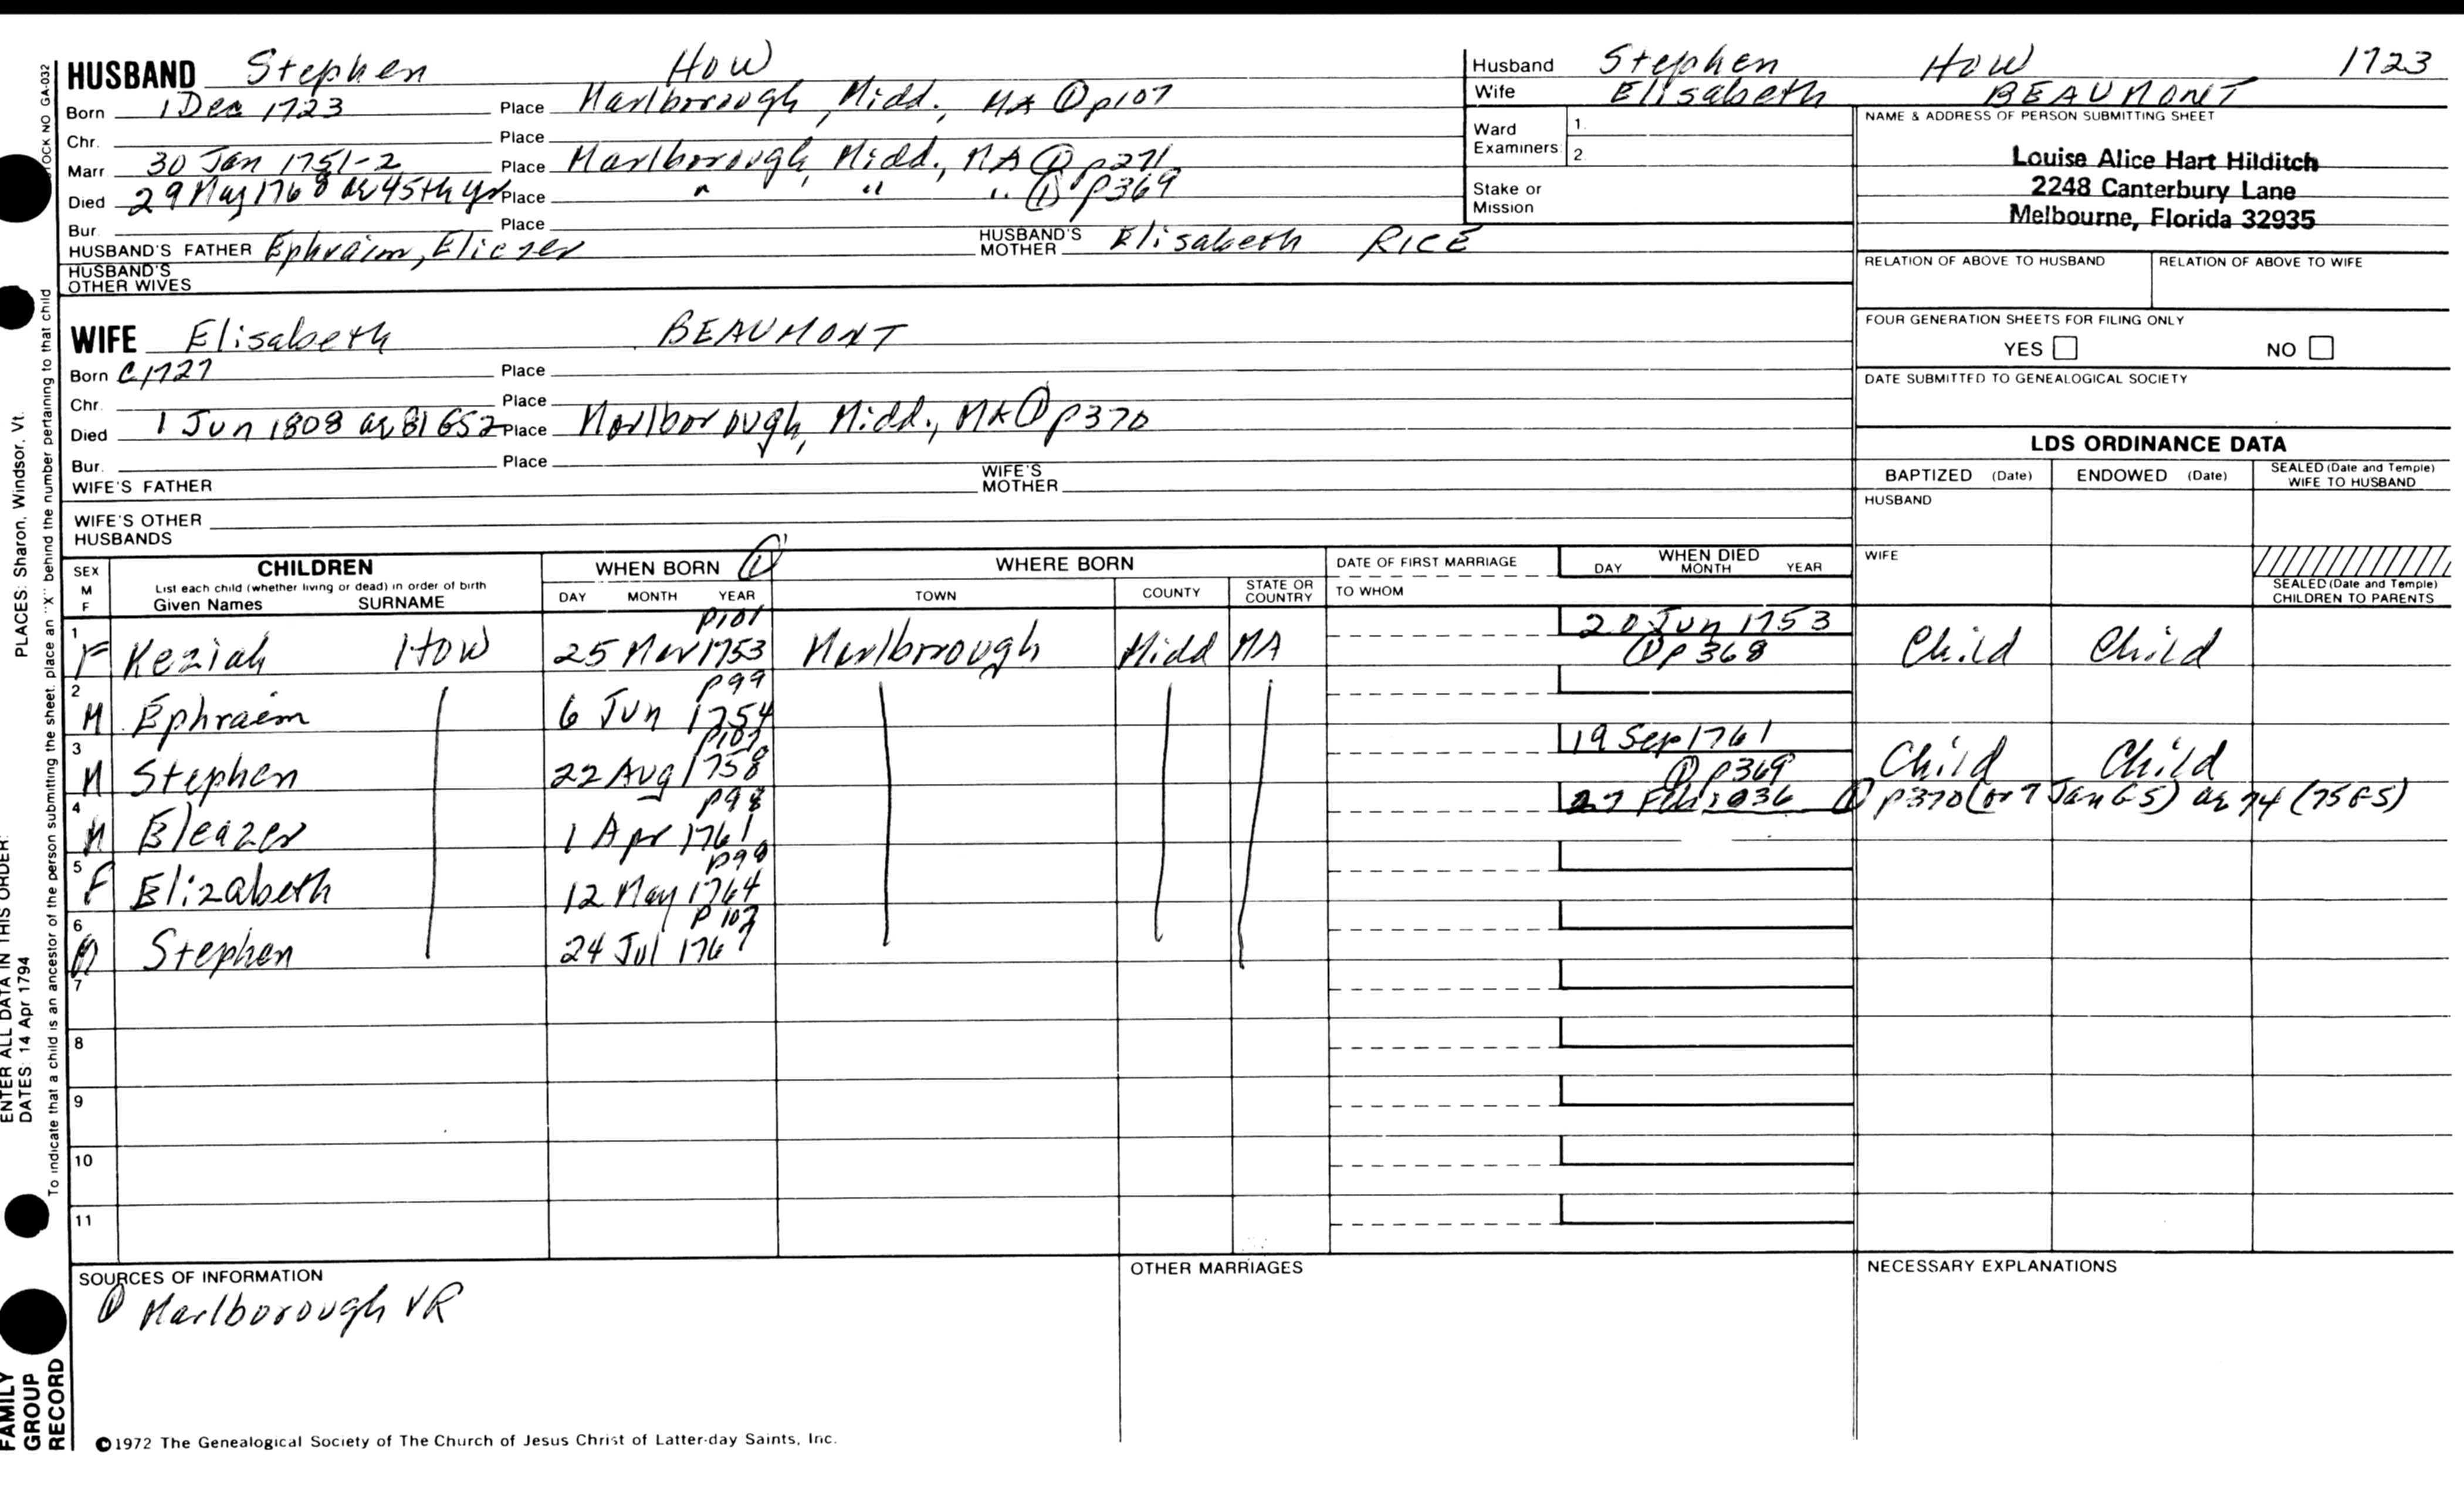 HUSBAND Stephen How
Born 1 Dec 1723 Place Marlborough, Midd, MA ① p107
Chr. Place
Marr 30 Jan 1751-2 Place Marlborough, Midd., MA ① p271
Died 29 May 1768 ae 45th yr Place " " " ① p369
Bur. Place
HUSBAND'S FATHER Ephraim, Eliezer HUSBAND'S MOTHER Elisabeth RICE
HUSBAND'S OTHER WIVES
Husband Stephen How 1723
Wife Elisabeth BEAUMONT
Ward Examiners 1. 2.
Stake or Mission
NAME & ADDRESS OF PERSON SUBMITTING SHEET
Louise Alice Hart Hilditch
2248 Canterbury Lane
Melbourne, Florida 32935
RELATION OF ABOVE TO HUSBAND RELATION OF ABOVE TO WIFE
FOUR GENERATION SHEETS FOR FILING ONLY
YES NO
DATE SUBMITTED TO GENEALOGICAL SOCIETY
WIFE Elisabeth BEAUMONT
Born C1727 Place
Chr. Place
Died 1 Jun 1808 ae 81 GS2 Place Marlborough, Midd., MA ① p370
Bur. Place
WIFE'S FATHER WIFE'S MOTHER
WIFE'S OTHER HUSBANDS
LDS ORDINANCE DATA
BAPTIZED (Date) ENDOWED (Date) SEALED (Date and Temple) WIFE TO HUSBAND
HUSBAND
WIFE
SEALED (Date and Temple) CHILDREN TO PARENTS
SEX M F
CHILDREN
List each child (whether living or dead) in order of birth
Given Names SURNAME
WHEN BORN ①
DAY MONTH YEAR
WHERE BORN
TOWN COUNTY STATE OR COUNTRY
DATE OF FIRST MARRIAGE
TO WHOM
WHEN DIED
DAY MONTH YEAR
1 F Keziah How 25 Mar 1753 p101 Marlborough Midd MA 20 Jun 1753 ① p368 Child Child
2 M Ephraim 6 Jun 1754 p99
3 M Stephen 22 Aug 1758 p107 19 Sep 1761 ① p369 Child Child
4 M Eleazer 1 Apr 1761 p98 27 Feb 1836 ① p370 (or 7 Jan GS) ae 74 (75 GS)
5 F Elizabeth 12 May 1764 p99
6 M Stephen 24 Jul 1767 p107
7
8
9
10
11
SOURCES OF INFORMATION
① Marlborough VR
OTHER MARRIAGES
NECESSARY EXPLANATIONS
©1972 The Genealogical Society of The Church of Jesus Christ of Latter-day Saints, Inc.
FAMILY GROUP RECORD
ENTER ALL DATA IN THIS ORDER:
DATES: 14 Apr 1794
PLACES: Sharon, Windsor, Vt.
To indicate that a child is an ancestor of the person submitting the sheet, place an "X" behind the number pertaining to that child
STOCK NO GA-032